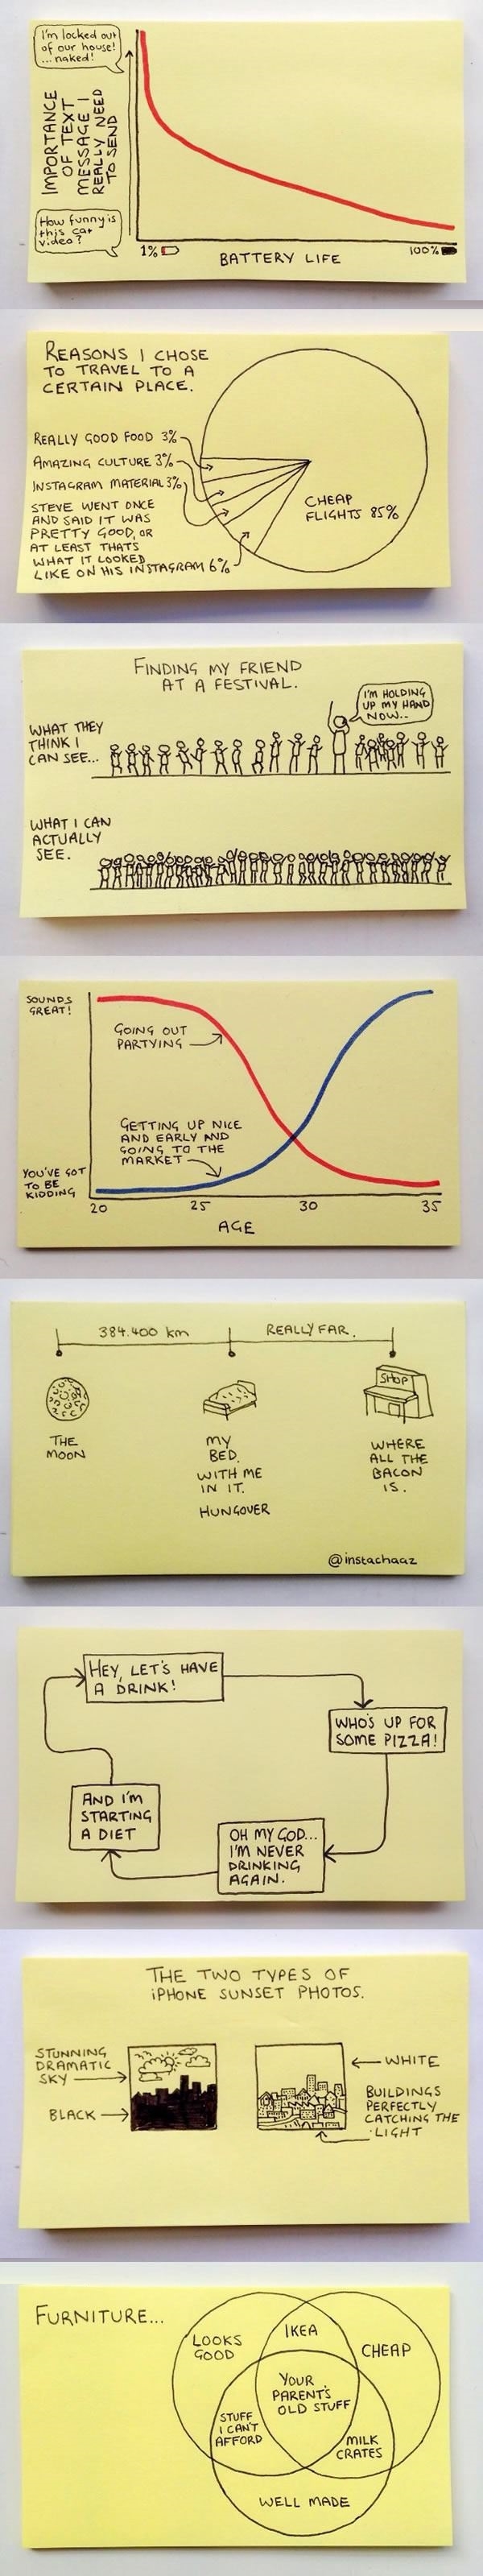 I'm locked out
of our house!
...naked!
IMPORTANCE
OF TEXT
MESSAGE I
REALLY NEED
TO SEND
How funny is
this cat
video?
1%
BATTERY LIFE
100%
REASONS I CHOSE
TO TRAVEL TO A
CERTAIN PLACE.
REALLY GOOD FOOD 3%
AMAZING CULTURE 3%
INSTAGRAM MATERIAL 3%
STEVE WENT ONCE
AND SAID IT WAS
PRETTY GOOD, OR
AT LEAST THATS
WHAT IT LOOKED
LIKE ON HIS INSTAGRAM 6%
CHEAP
FLIGHTS 85%
FINDING MY FRIEND
AT A FESTIVAL.
I'M HOLDING
UP MY HAND
NOW..
WHAT THEY
THINK I
CAN SEE...
WHAT I CAN
ACTUALLY
SEE.
SOUNDS
GREAT!
GOING OUT
PARTYING
GETTING UP NICE
AND EARLY AND
GOING TO THE
MARKET
YOU'VE GOT
TO BE
KIDDING
20 25 30 35
AGE
384.400 km
REALLY FAR.
SHOP
THE
MOON
MY
BED.
WITH ME
IN IT.
HUNGOVER
WHERE
ALL THE
BACON
IS.
@instachaaz
HEY, LET'S HAVE
A DRINK!
WHO'S UP FOR
SOME PIZZA!
OH MY GOD...
I'M NEVER
DRINKING
AGAIN.
AND I'M
STARTING
A DIET
THE TWO TYPES OF
iPHONE SUNSET PHOTOS.
STUNNING
DRAMATIC
SKY
BLACK
WHITE
BUILDINGS
PERFECTLY
CATCHING THE
LIGHT
FURNITURE...
LOOKS
GOOD
IKEA
CHEAP
YOUR
PARENT'S
OLD STUFF
STUFF
I CAN'T
AFFORD
MILK
CRATES
WELL MADE